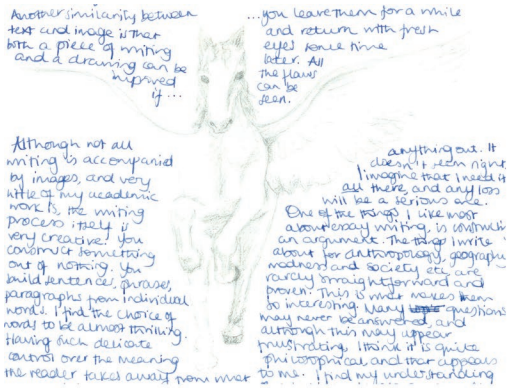 Another similarity between
text and image is that
both a piece of writing
and a drawing can be
improved
if ...
...you leave them for a while
and return with fresh
eyes some time
later. All
the flaws
can be
seen.
Although not all
writing is accompanied
by images, and very
little of my academic
work is, the writing
process itself is
very creative. You
construct something
out of nothing. You
build sentences, phrases,
paragraphs from individual
words. I find the choice of
words to be almost thrilling.
Having such delicate
control over the meaning
the reader takes away from what
anything out. It
doesn't seem right.
I imagine that I need it
all there, and any loss
will be a serious one.
One of the things I like most
about essay writing, is constructing
an argument. The things I write
about for anthropology, geography
madness and society etc are
rarely straightforward and
proven. This is what makes them
so interesting. Many questions
may never be answered, and
although this may appear
frustrating, I think it is quite
philosophical, and that appeals
to me. I find my understanding